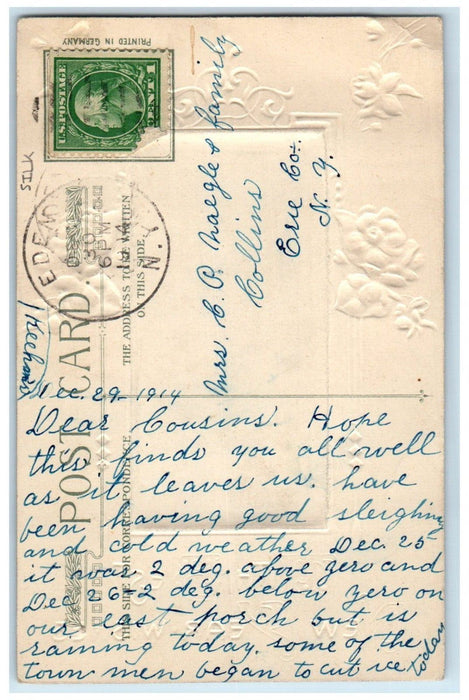 PRINTED IN GERMANY
U.S. POSTAGE
1 CENT 1
SILK
EDEN
DEC
30
6 PM
N.Y.
POST CARD.
THE ADDRESS TO BE WRITTEN
ON THIS SIDE.
THIS SIDE FOR CORRESPONDENCE
Mrs. C. P. Naegle & family
Collins
Erie Co.
N. Y.
Dec. 29-1914
Dear Cousins. Hope
this finds you all well
as it leaves us. have
been having good sleighing
and cold weather Dec. 25
it was 2 deg. above zero and
Dec 26-2 deg. below zero on
our east porch but is
raining today. some of the
town men began to cut ice today